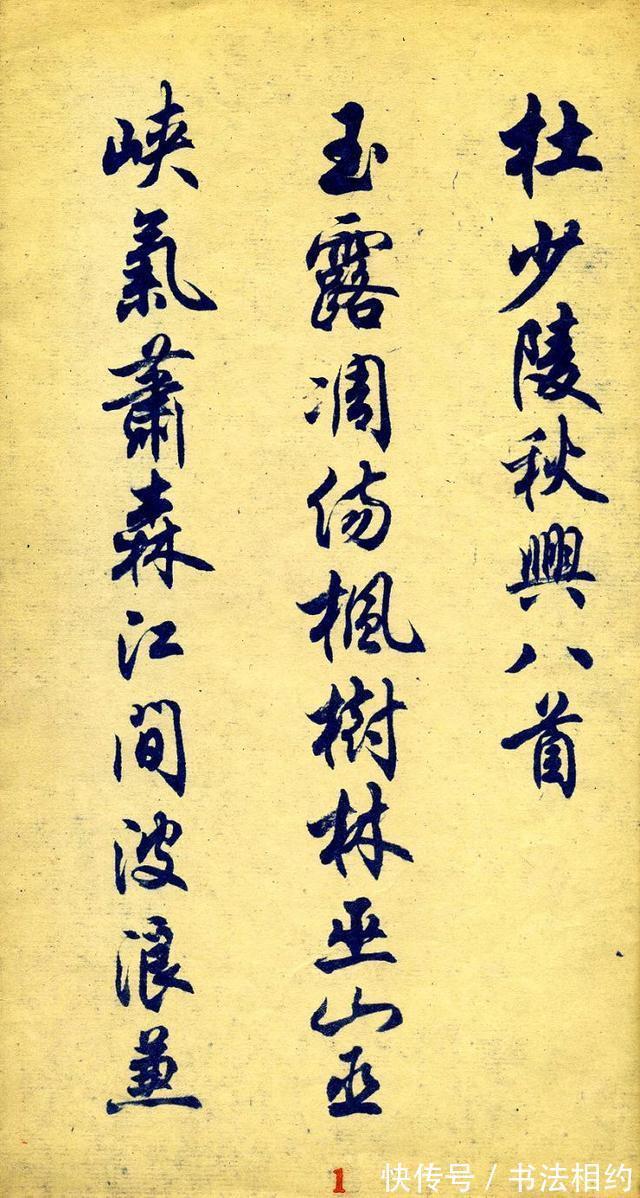 杜少陵秋興八首
玉露凋傷楓樹林巫山巫
峽氣蕭森江間波浪兼
1
快传号/书法相约